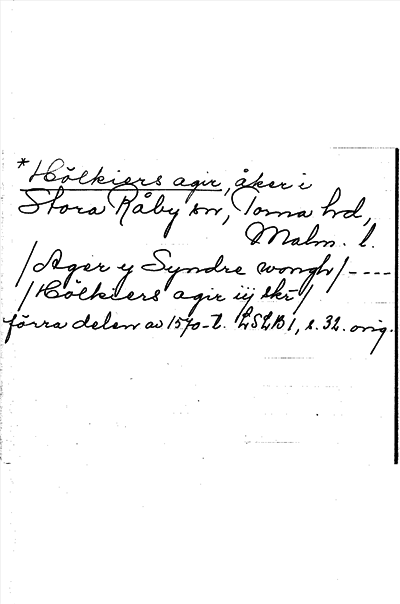 *Hölkiers agir, åker i
Stora Råby sn, Torna hd,
Malm. l.
/Ager y Syndre wongh/----
/Hölkiers agir iij skr/
förra delen av 1570-t. LSLB1, s. 32. orig.